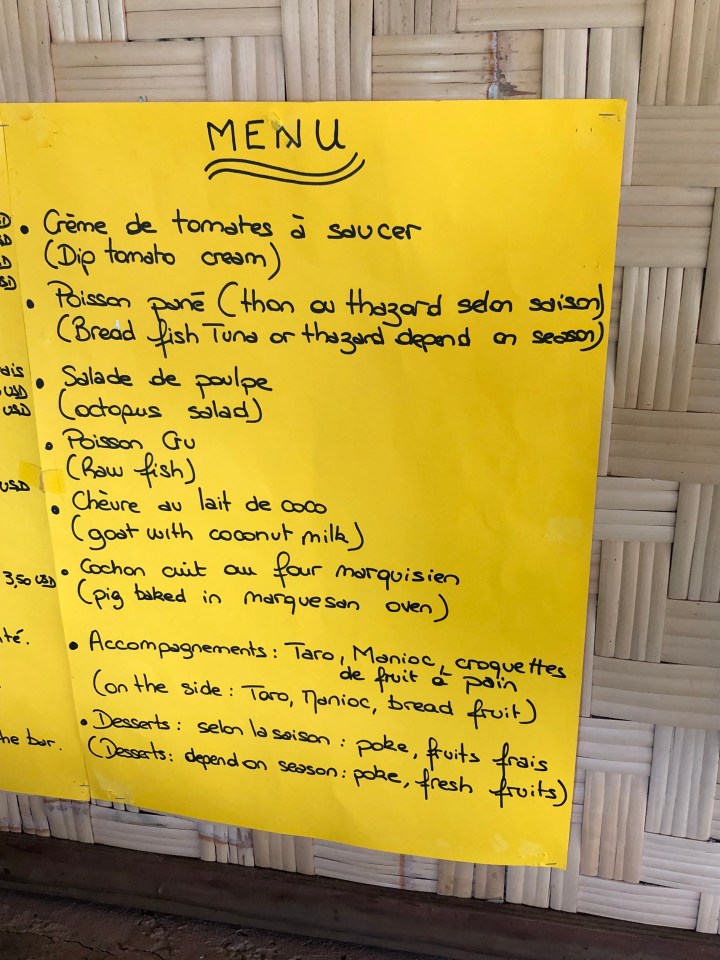 MENU
• Crème de tomates à saucer
(Dip tomato cream)
• Poisson pané (thon ou thazard selon saison)
(Bread fish Tuna or thazard depend on season)
• Salade de poulpe
(octopus salad)
• Poisson Cru
(Raw fish)
• Chèvre au lait de coco
(goat with coconut milk)
• Cochon cuit au four marquisien
(pig baked in marquesan oven)
• Accompagnements : Taro, Manioc, croquettes
de fruit à pain
(on the side : Taro, Manioc, bread fruit)
• Desserts : selon la saison : poke, fruits frais
(Desserts : depend on season : poke, fresh fruits)
USD
USD
USD
3,50 USD
té.
he bar.